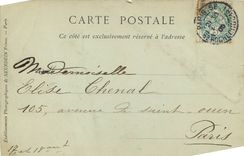 CARTE POSTALE
Ce côté est exclusivement réservé à l'adresse
Mademoiselle
Elise Chenal
105, avenue de Saint-ouen
Paris
Etablissements Photographiques de NEURDEIN Frères. — Paris